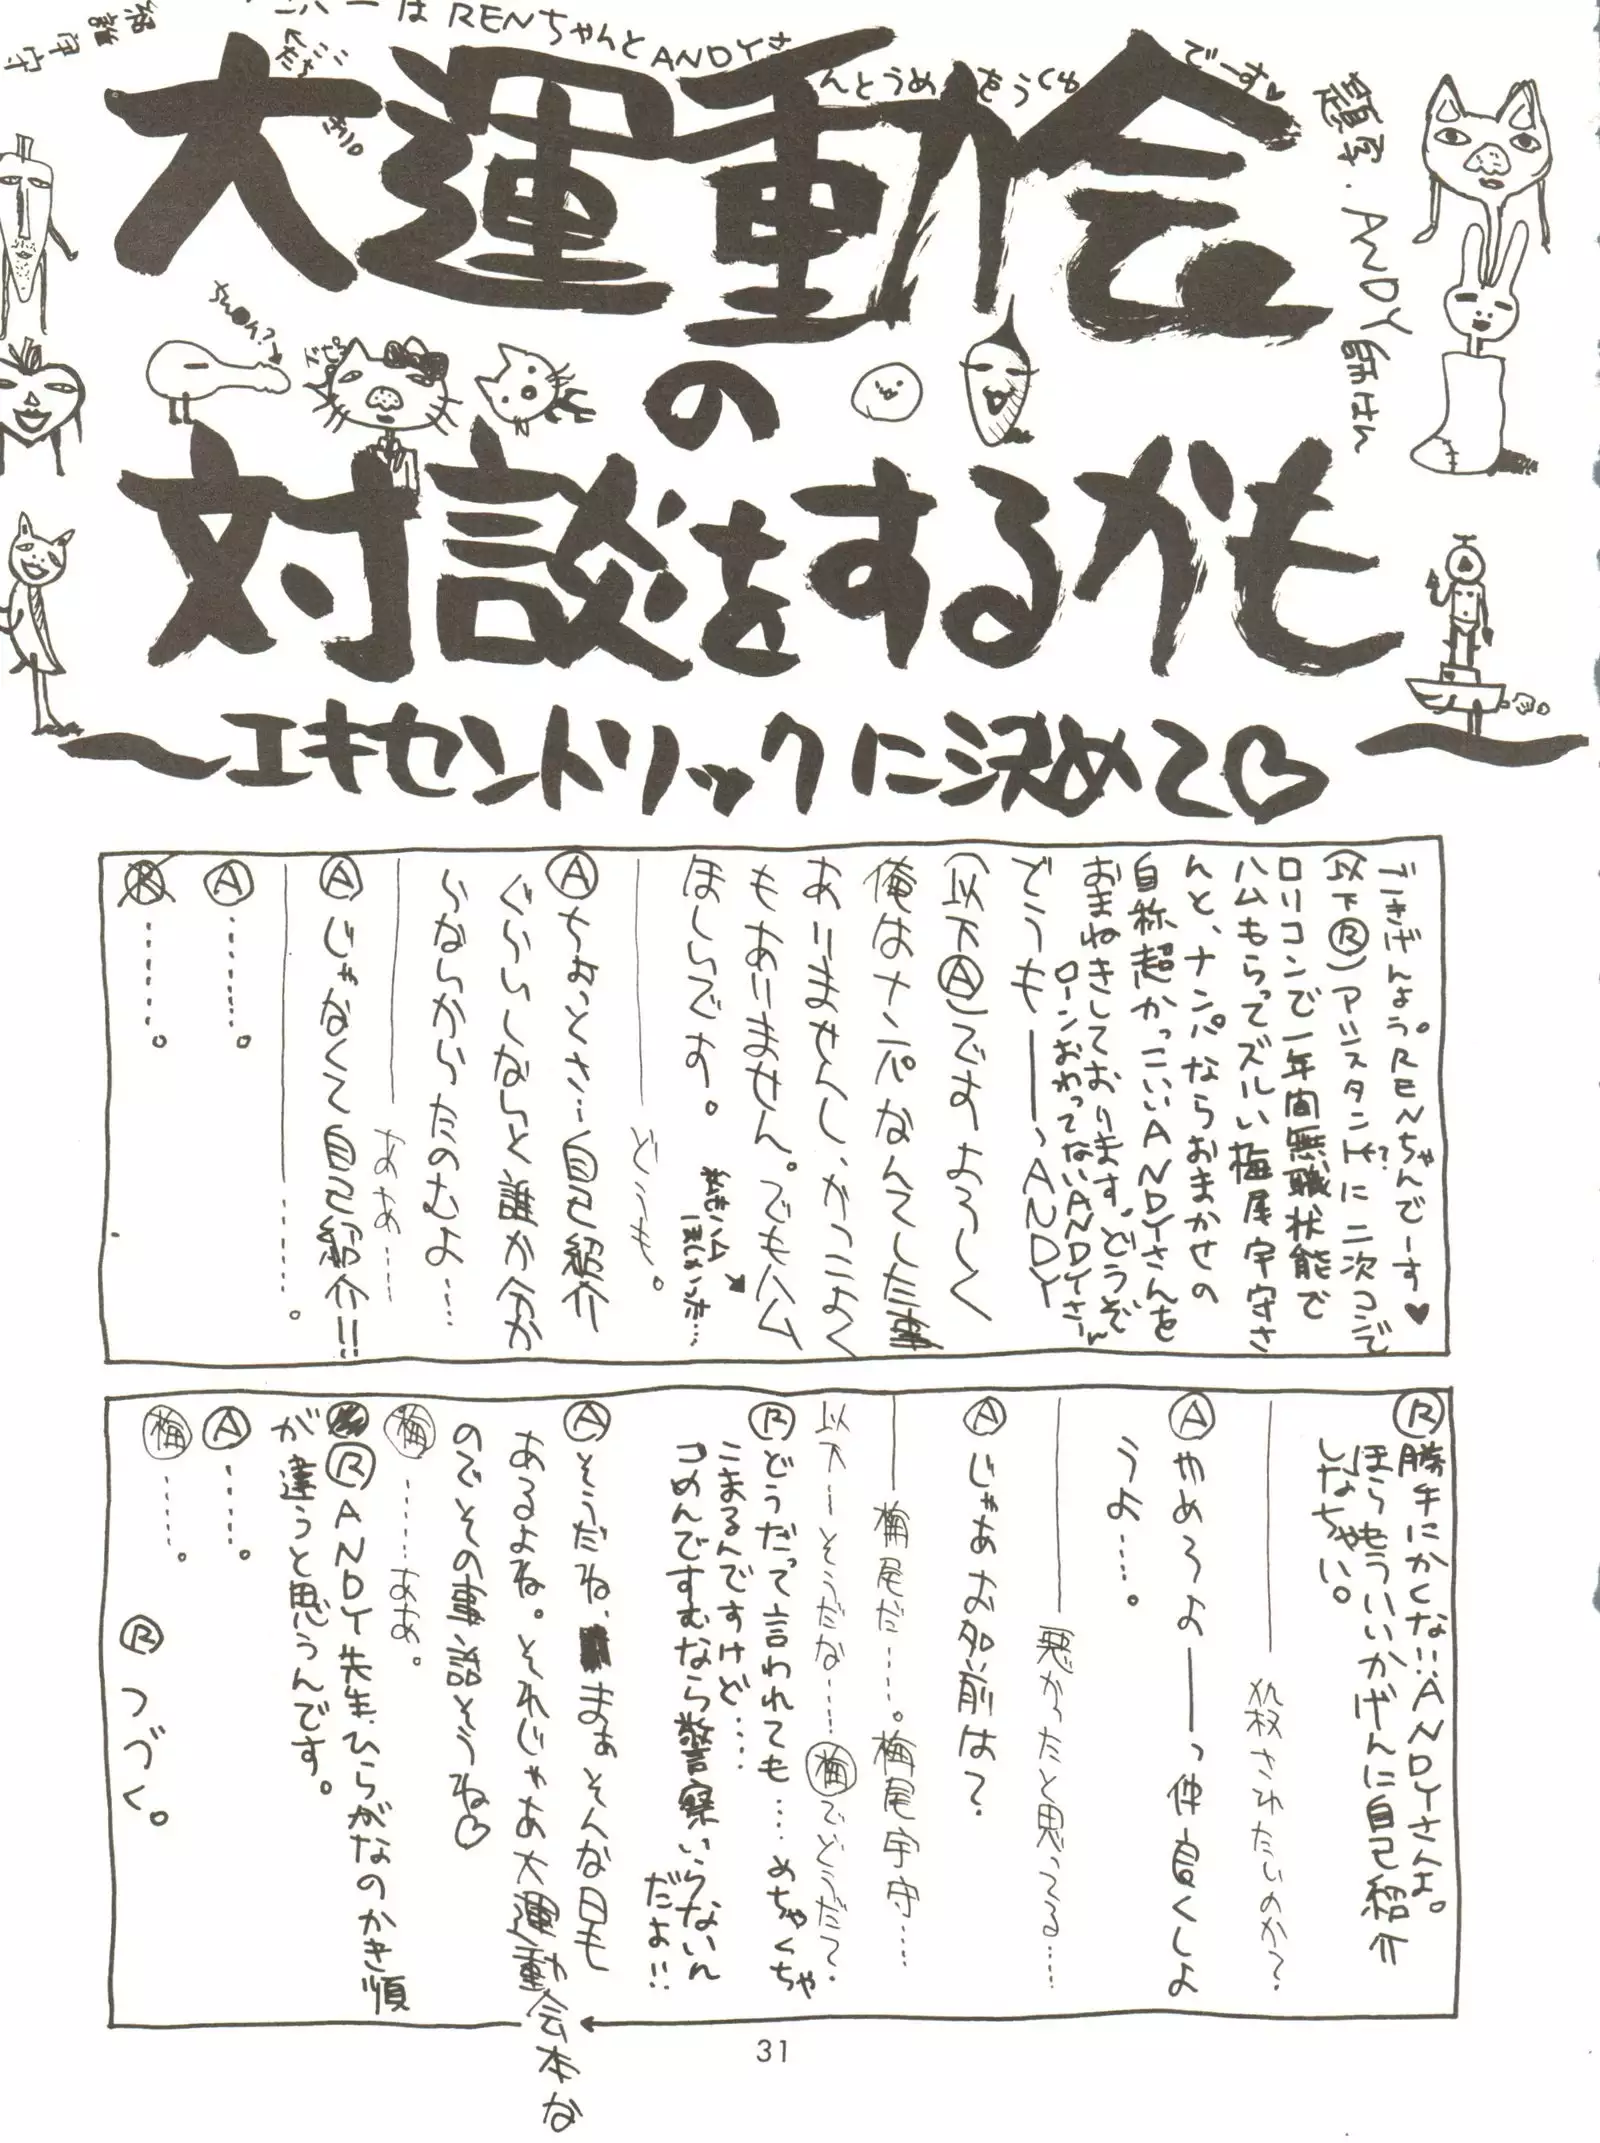 は RENちゃんとANDYさ
んとうめ
でーす♥
大運動会
の
対談をするかも
〜エキセントリックに決めて♡〜
題字・ANDY師はん
ごきげんよう。RENちゃんでーす♥
(以下Ⓡ)アシスタントに二次コンで
ロリコンで一年間無職状態で
ハムもらってズルい梅尾宇守さ
んと、ナンパならおまかせの
自称超かっこいいANDYさんを
おまねきしております。どうぞ
ローンおわってないANDYさーん
どうも――、ANDY
(以下Ⓐ)ですよろしく
俺はナンパなんてした事
ありませんし、かっこよく
もありません。でもハム
ほしいです。
―――どうも。
Ⓐちょっとさ…自己紹介
ぐらいしないと誰か分か
らないからたのむよ…
―――ああ……
Ⓐじゃなくて自己紹介!!
―――……。
Ⓐ………。
………。
Ⓡ勝手にかくな!!ANDYさんよ。
ほらもういいかげんに自己紹介
しなちゃい。
―――殺されたいのか?
Ⓐやめろよ――っ仲良くしよ
うよ……。
―――悪かったと思ってる…
Ⓐじゃあお名前は?
―――梅尾だ……。梅尾宇守……
以下―そうだな……㊙梅でどうだ?
Ⓡどうだって言われても…めちゃくちゃ
こまるんですけど……
つめんですむなら警察いらないん
だよ!!
Ⓐそうだね、まぁそんな日も
あるよね。それじゃあ大運動会本な
のでその事話そうね♡
梅……ああ。
ⓇANDY先生、ひらがなのかき順
が違うと思うんです。
Ⓐ……。
梅……。
Ⓡつづく。
31